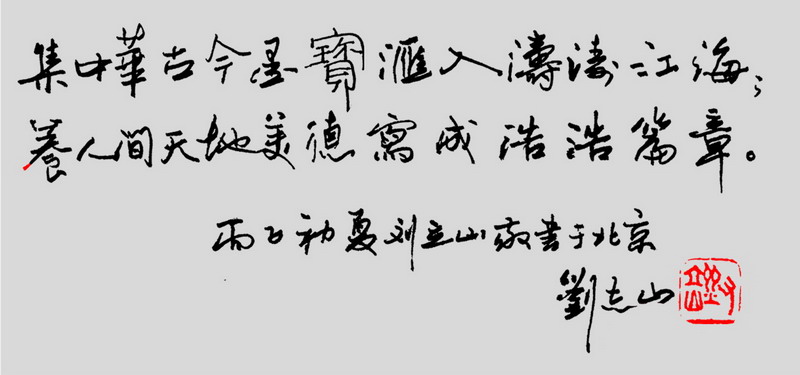 集中華古今墨寶滙入濤涛江海；
養人間天地美德寫成浩浩篇章。
初夏刘立山敬書于北京
劉立山